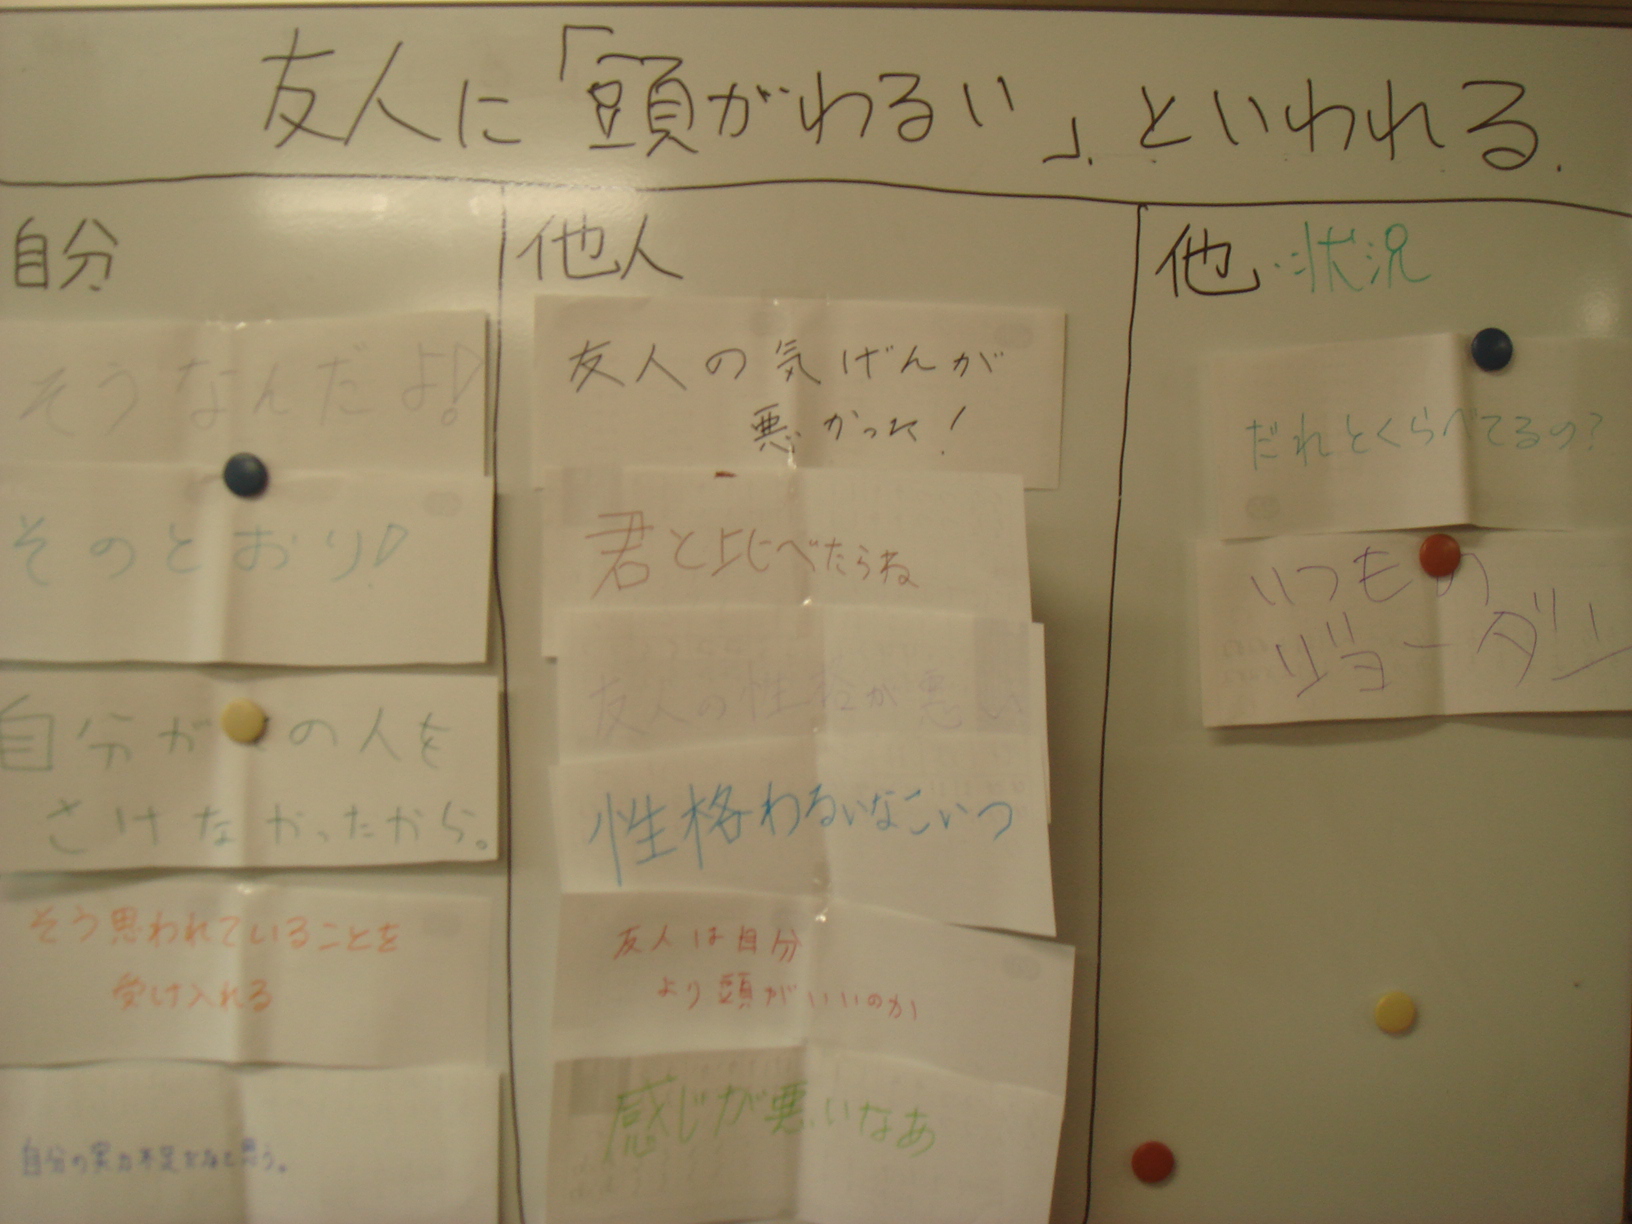 友人に「頭がわるい」といわれる.
自分
そうなんだよ!
そのとおり!
自分が の人を
さけなかったから。
そう思われていることを
受け入れる
自分の実力不足だなと思う。
他人
友人の気げんが
悪かった!
君と比べたらね
友人の性格が悪い
性格わるいなこいつ
友人は自分
より頭がいいのか
感じが悪いなあ
他・状況
だれとくらべてるの?
いつもの
ジョーダン